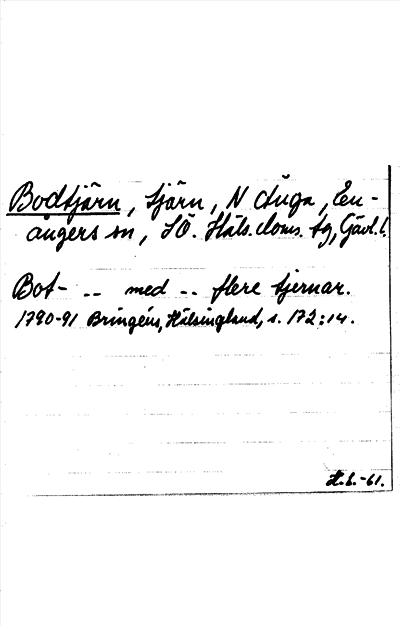 Bodtjärn, tjärn, N Auga, En-
ångers sn, SÖ. Häls. doms. tg, Gävl. l.
Bot- -- med -- flere tjernar.
1790-91 Bringéus, Hälsingland, s. 172:14.
H.L.-61.